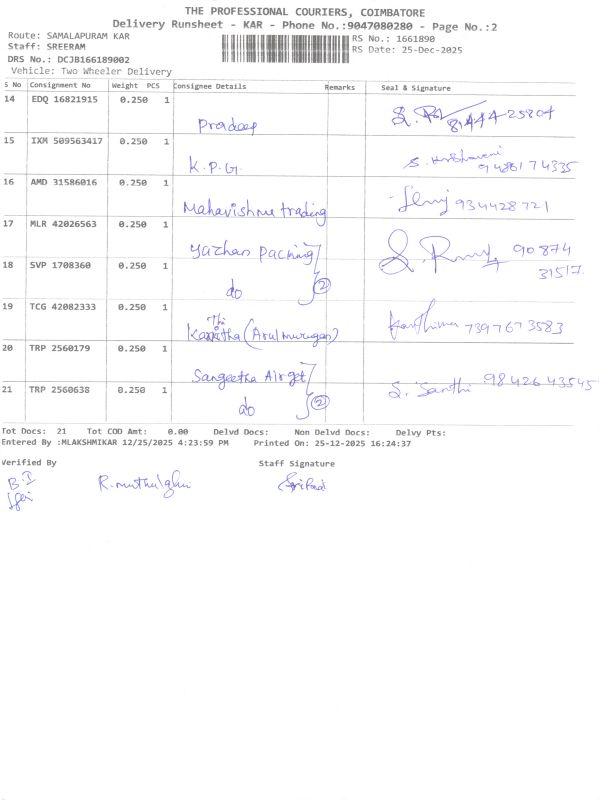 THE PROFESSIONAL COURIERS, COIMBATORE
Delivery Runsheet - KAR - Phone No.:9047080280 - Page No.:2
Route: SAMALAPURAM KAR
RS No.: 1661890
Staff: SREERAM
RS Date: 25-Dec-2025
DRS No.: DCJB166189002
Vehicle: Two Wheeler Delivery
S No Consignment No Weight PCS Consignee Details Remarks Seal & Signature
14 EDQ 16821915 0.250 1
Pradeep
15 IXM 509563417 0.250 1
K.P.G. 9486174335
16 AMD 31586016 0.250 1
Mahavishnu trading 934428721
17 MLR 42026563 0.250 1
Yazhan Packing 90874
18 SVP 1708360 0.250 1 31517
do 2
19 TCG 42082333 0.250 1
(Arulmurugan) 7397673583
20 TRP 2560179 0.250 1
Sangeetha Airjet S. Santhi 9842643545
21 TRP 2560638 0.250 1
do 2
Tot Docs: 21 Tot COD Amt: 0.00 Delvd Docs: Non Delvd Docs: Delvy Pts:
Entered By :MLAKSHMIKAR 12/25/2025 4:23:59 PM Printed On: 25-12-2025 16:24:37
Verified By Staff Signature